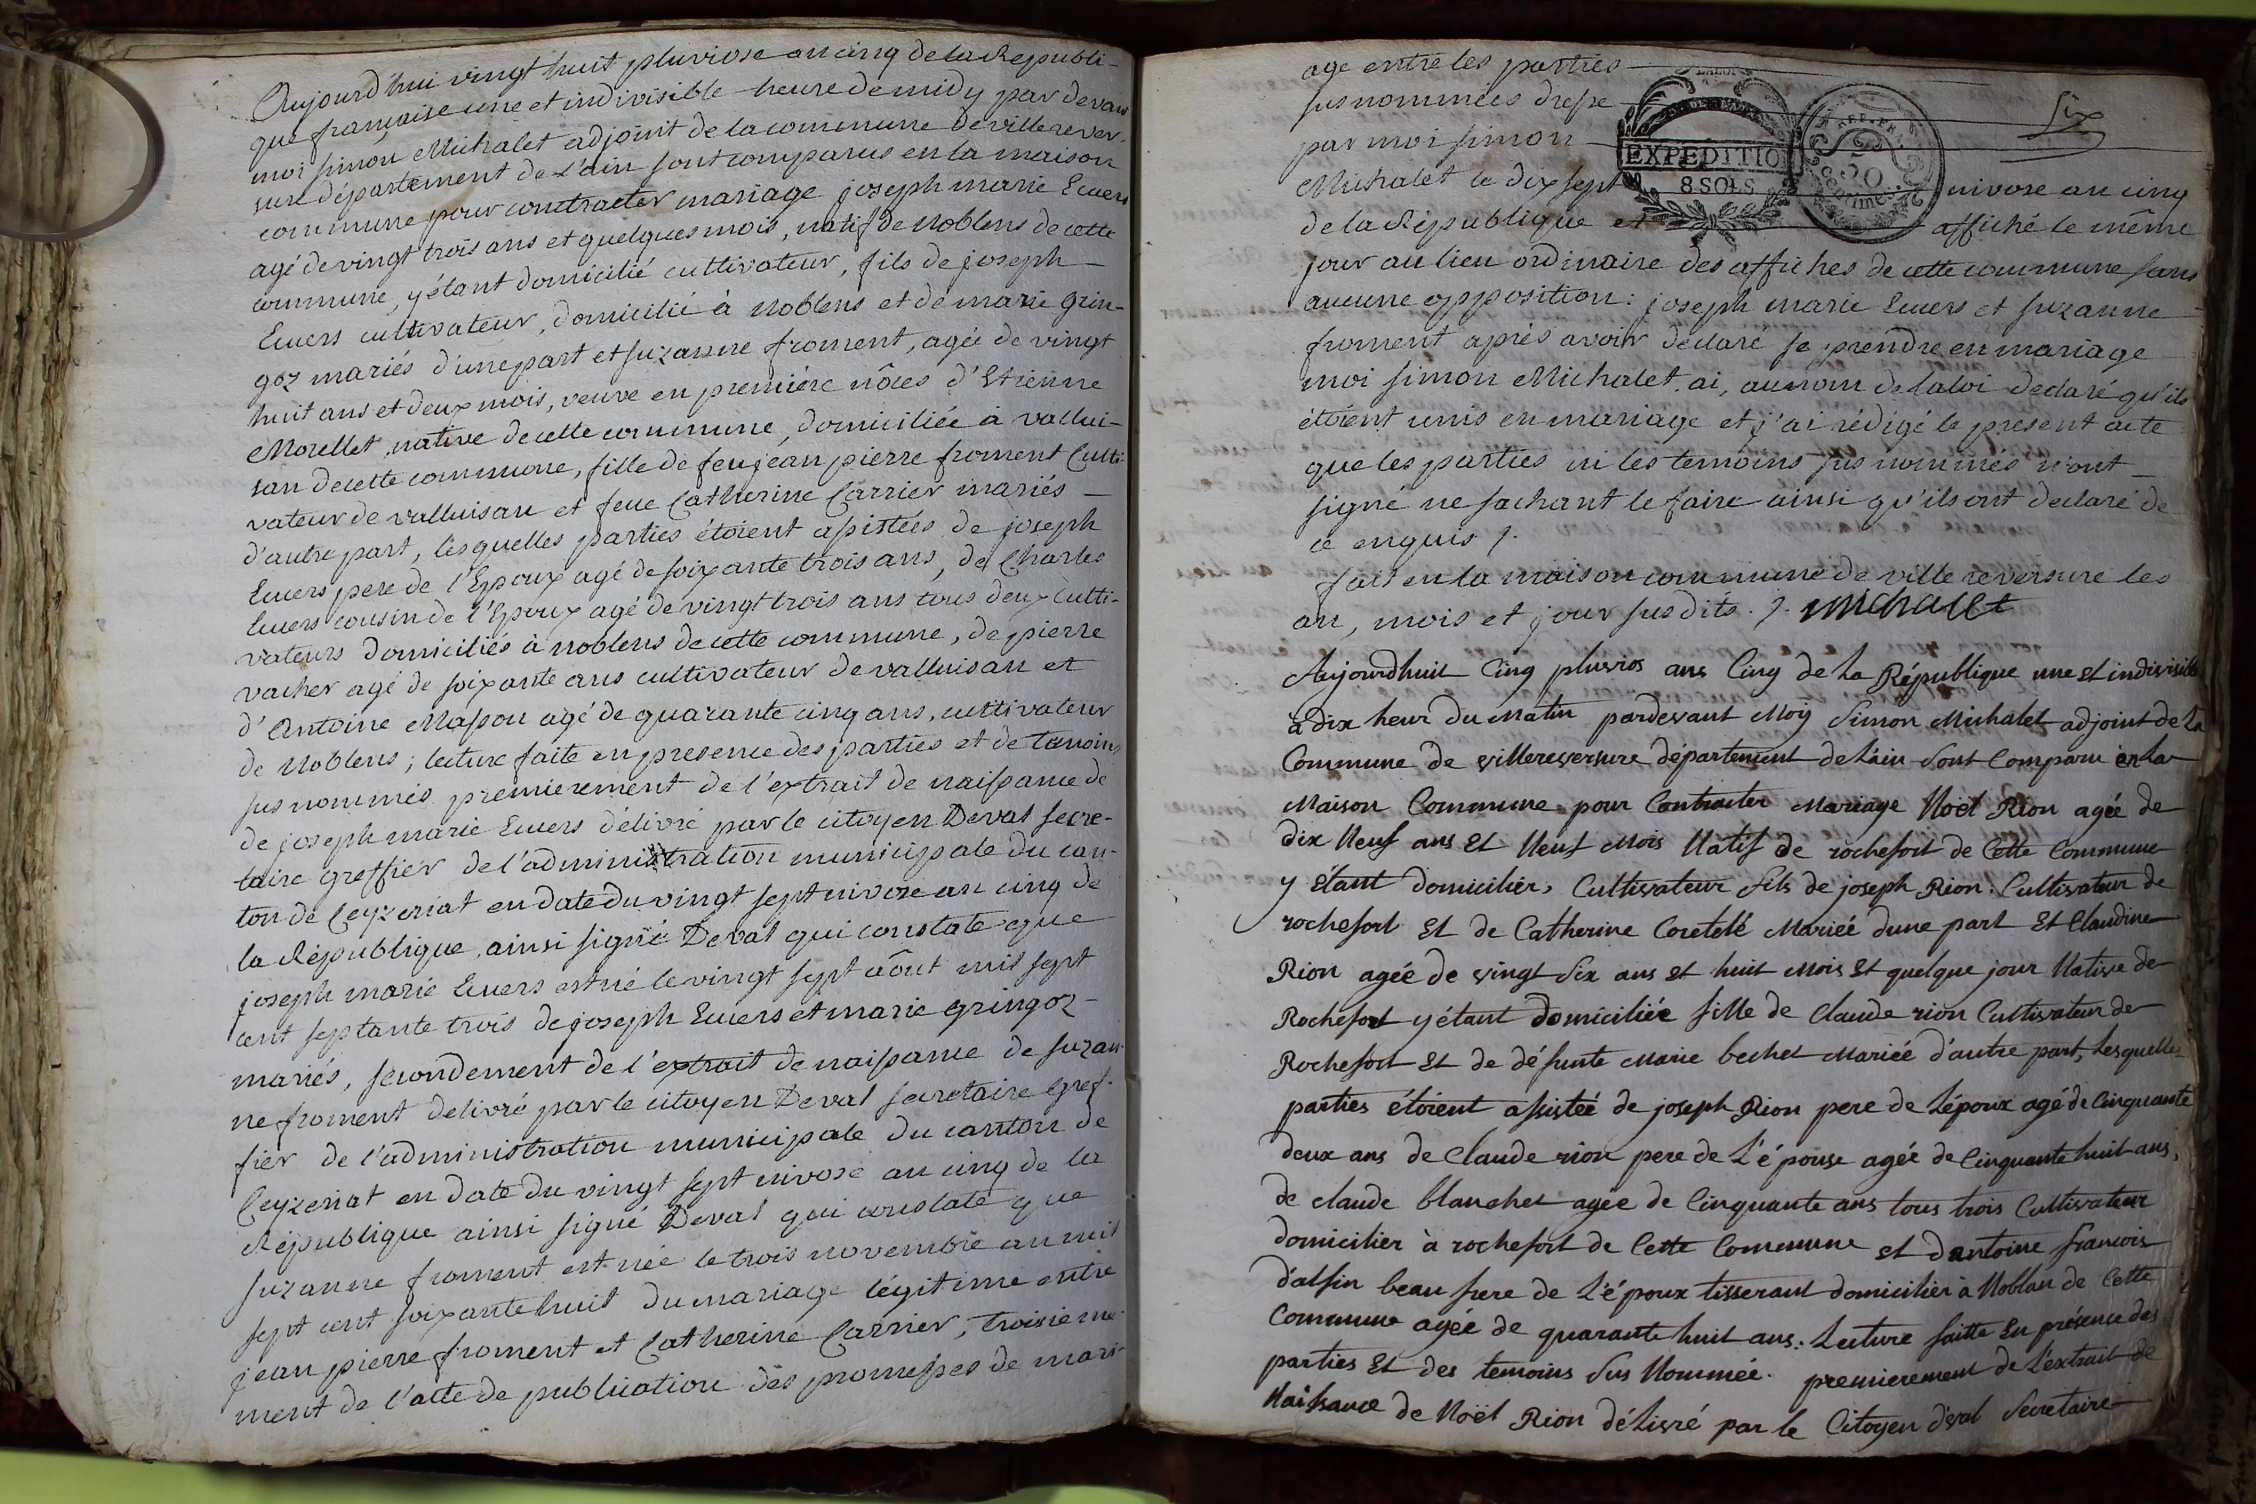 Aujourd'hui vingt huit pluviose an cinq de la Republi-
que française une et indivisible heure de midy par devant
moi simon Michalet adjoint de la commune de villerever-
sure département de l'ain sont comparus en la maison
commune pour contracter mariage joseph marie Euvers
agé de vingt trois ans et quelques mois, natif de Noblens de cette
commune, y étant domicilié cultivateur, fils de joseph
Euvers cultivateur, domicilié à Noblens et de marie grin-
goz mariés d'une part et suzanne froment, agée de vingt
huit ans et deux mois, veuve en premiére nôces d'Etienne
Morellet, native de cette commune, domiciliée à vallui-
san de cette commune, fille de feu jean pierre froment Culti-
vateur de valluisan et feue Catherine Carrier mariés
d'autre part, lesquelles parties étoient assistées de joseph
Euvers pere de l'Epoux agé de soixante trois ans, de Charles
Euvers cousin de l'Epoux agé de vingt trois ans tous deux culti-
vateurs domiciliés à noblens de cette commune, de pierre
vacher agé de soixante ans cultivateur de valluisan et
d'Antoine Masson agé de quarante cinq ans, cultivateur
de Noblens; lecture faite en presence des parties et de temoins
sus nommés premierement de l'extrait de naissance de
de joseph marie Euvers délivré par le citoyen Deval secre-
taire greffier de l'administration municipale du can-
ton de Ceyzeriat en date du vingt sept nivose an cinq de
la République, ainsi signé Deval qui constate que
joseph marie Euvers est né le vingt sept aôut mil sept
cent septante trois de joseph Euvers et marie gringoz
mariés, secondement de l'extrait de naissance de suzan-
ne froment delivré par le citoyen Deval secretaire gref-
fier de l'administration municipale du canton de
Ceyzeriat en date du vingt sept nivose an cinq de la
République ainsi signé Deval qui constate que
suzanne froment est née le trois novembre an mil
sept cent soixante huit du mariage légitime entre
jean pierre froment et Catherine Carrier, troisieme-
ment de l'acte de publication des promesses de mari-
age entre les parties
sus nommées dressé
par moi simon
Michalet le dix sept nivose an cinq
de la République et affiché le même
jour au lieu ordinaire des affiches de cette commune sans
aucune opposition: joseph marie Euvers et suzanne
froment aprés avoir déclaré se prendre en mariage
moi simon Michalet ai, au nom de la loi declaré qu'ils
étoient unis en mariage et j'ai rédigé le present acte
que les parties ni les temoins sus nommés n'ont
signé ne sachant le faire ainsi qu'ils ont declaré de
ce enquis /.
fait en la maison commune de villereversure les
an, mois et jour sus dits. /. michalet
LA LOI
EXPEDITIO
8 SOLS
50
centime
Six
Aujourdhuit Cinq pluvios ans Cinq de La République une et indivisible
à dix heur du Matin pardevant Moy Simon Michalet adjoint de La
Commune de villereversure département de Lain sont Comparu en La
Maison Commune pour Contracter Mariage Noël Rion agée de
dix Neuf ans Et Neuf Mois Natif de rochefort de Cette Commune
y étant domicilier, Cultivateur fils de joseph Rion Cultivateur de
rochefort Et de Catherine Coretelé Mariéé dune part Et Claudine
Rion agée de vingt six ans et huit Mois Et quelque jour Native de
Rochefort y étant domiciliée fille de Claude rion Cultivateur de
Rochefort Et de défunte Marie bechet Mariée d'autre part, Lesquelles
parties étoient assisteé de joseph Rion pere de Lépoux agé de Cinquante
deux ans de Claude rion pere de L'épouse agée de Cinquante huit ans,
de claude blanchet agée de Cinquante ans tous trois Cultivateur
domicilier à rochefort de Cette Commune et dantoine francois
dalfin beau frere de L'époux tisserant domicilier à Noblan de Cette
Commune agée de quarante huit ans: Lecture faitte En présence des
parties Et des temoins Sus Nommée. premierement de L'extrait de
Naissance de Noël Rion déLivré par le Citoyen déval Secretaire